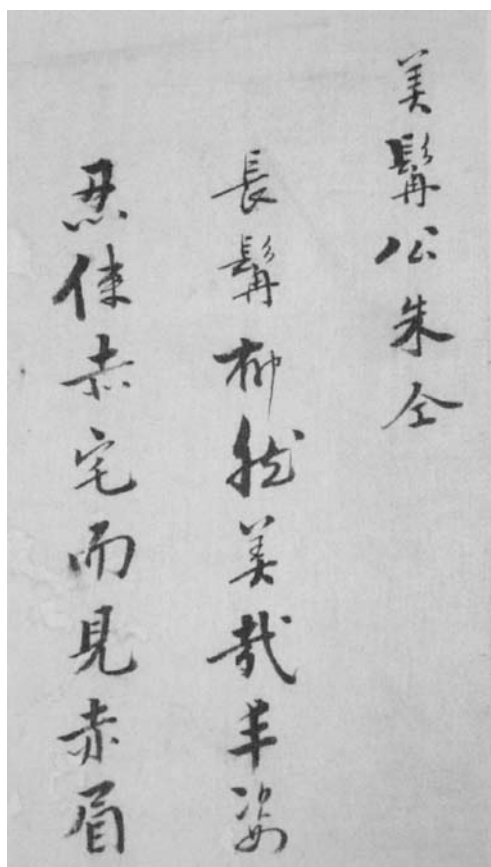 美髯公朱仝
長髯郁然美哉丰姿
忍使赤宅而見赤眉